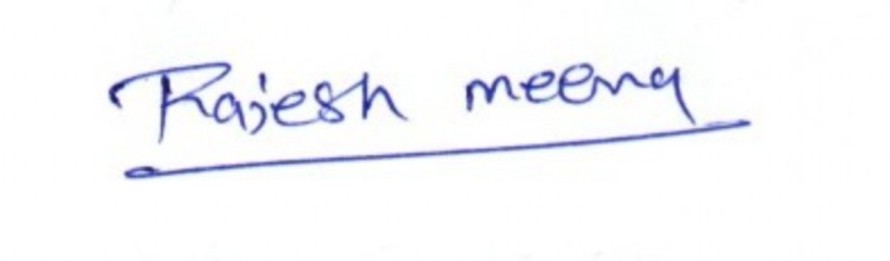 Rajesh meena